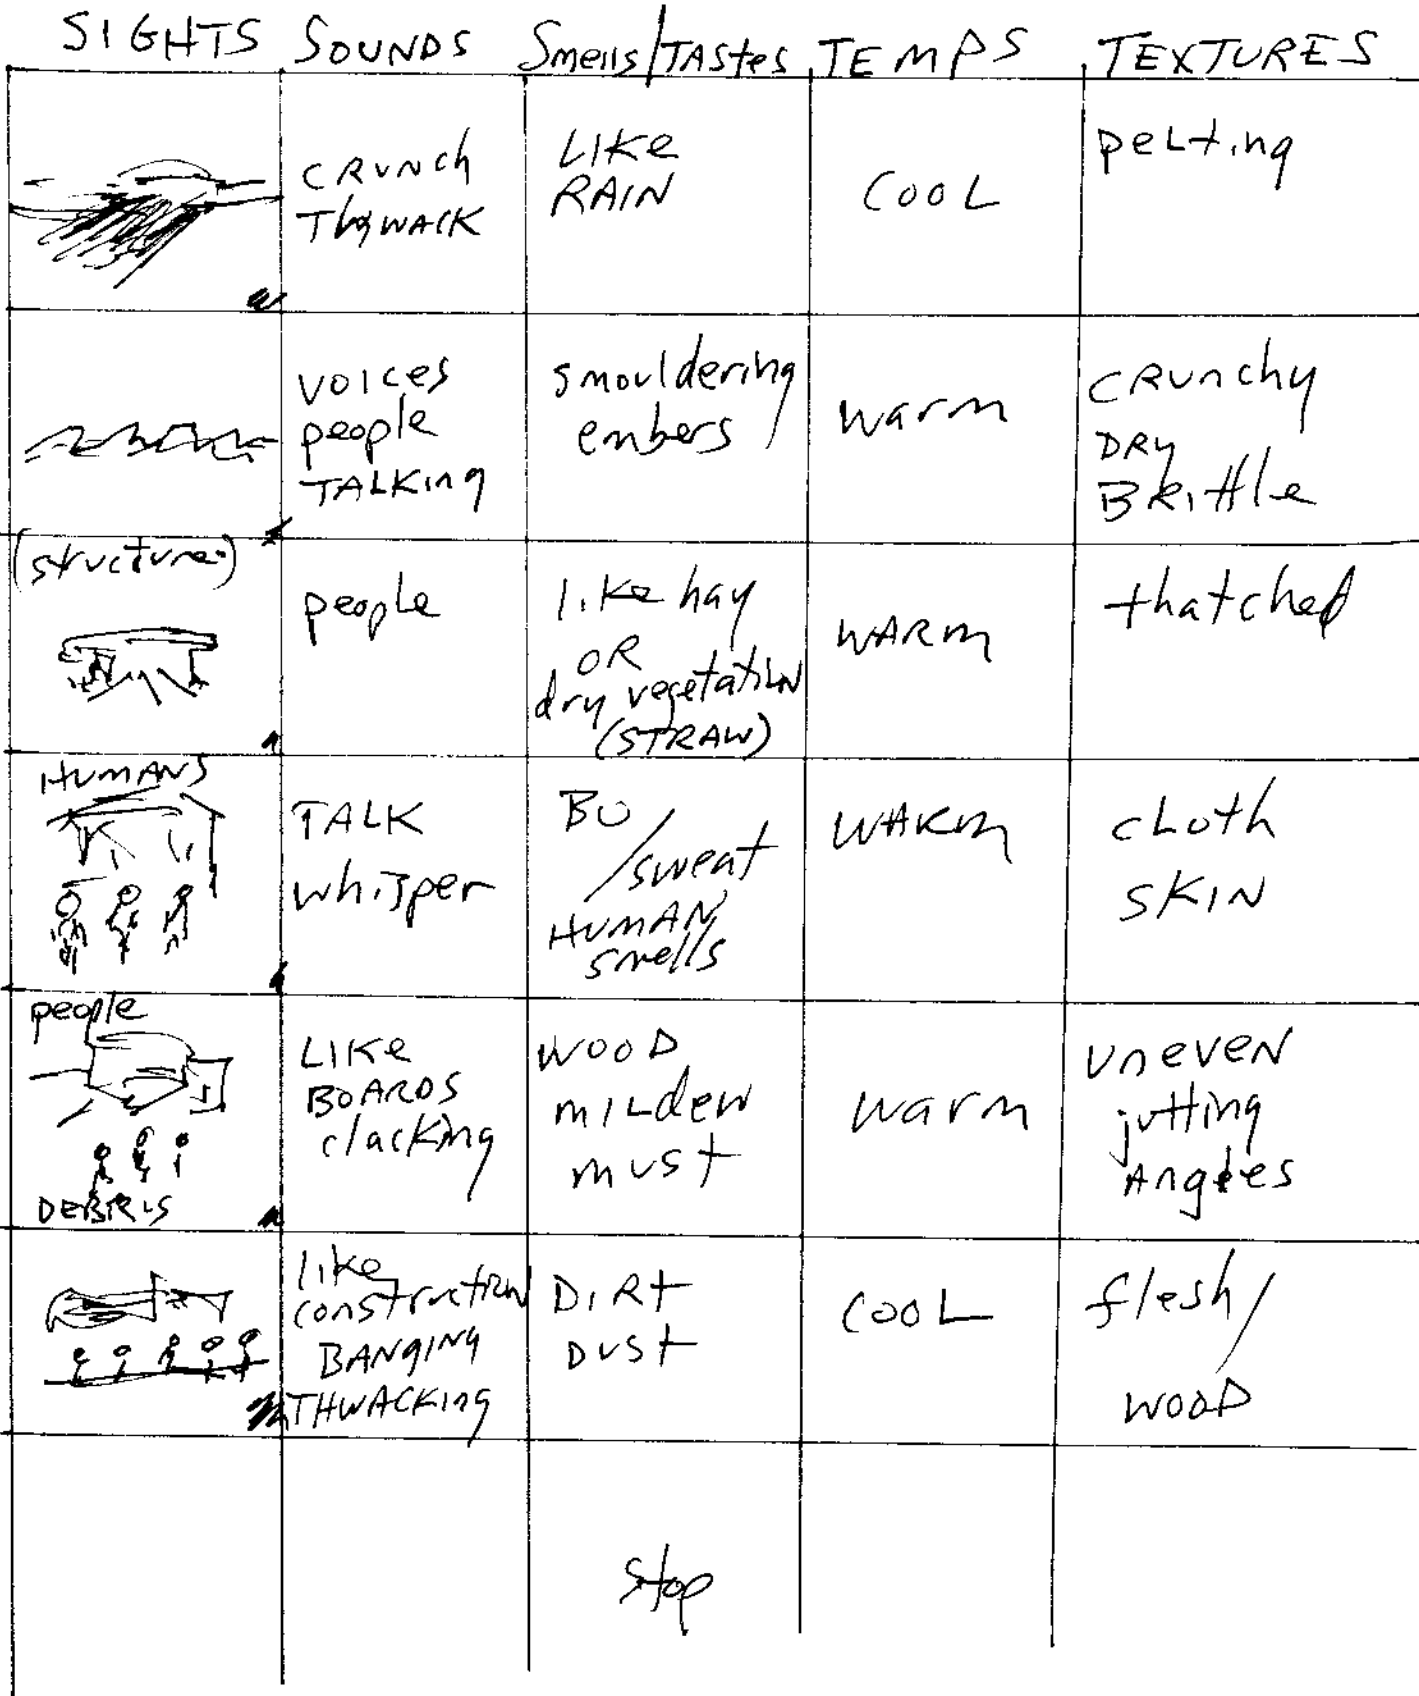 SIGHTS SOUNDS Smells/TASTes TEMPS TEXTURES
CRUNCh
ThWACK
LIKe
RAIN
COOL
peLting
voices
people
TALKing
smouldering
embers
warm
CRunchy
DRy
BRittle
(structure)
people
like hay
OR
dry vegetation
(STRAW)
WARM
thatched
HUMANS
TALK
whisper
BO
/sweat
HUMAN
smells
WARM
cLoth
SKIN
people
DEBRIS
LIKe
BOARDS
clacking
WOOD
MILdew
must
warm
UnevEN
jutting
Angles
like
construction
BANGING
THWACKing
DiRt
DUSt
COOL
flesh/
WOOD
stop